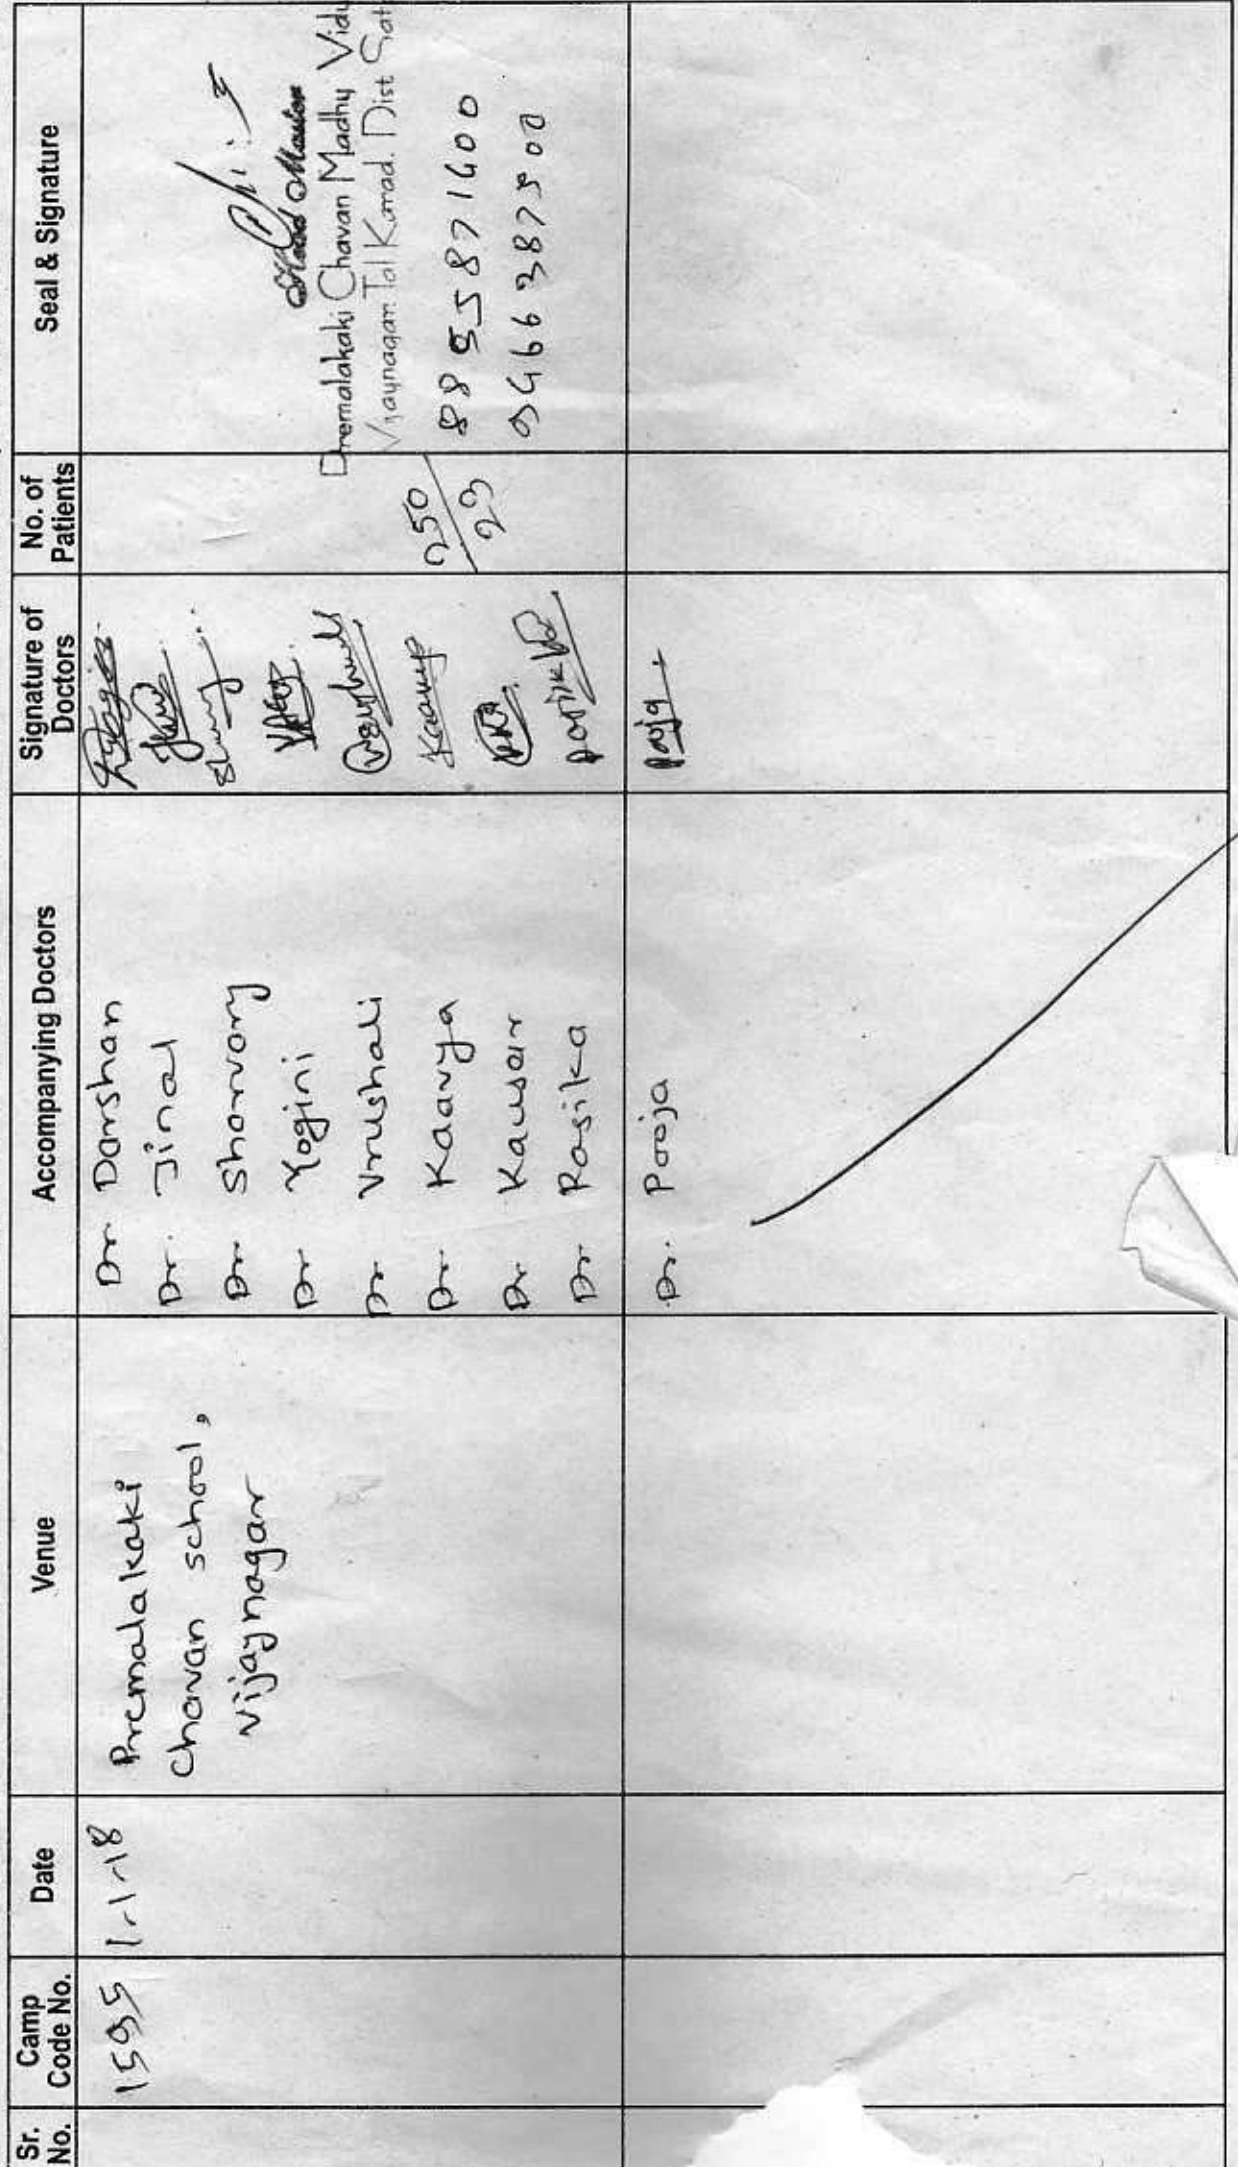 Sr. No.
Camp Code No.
Date
Venue
Accompanying Doctors
Signature of Doctors
No. of Patients
Seal & Signature
1595
1-1-18
Premalakaki
Chavan school,
vijaynagar
Dr Darshan
Dr. Jinal
Dr Sharvary
Dr Yogini
Dr Vrushali
Dr. Kaavya
Dr Kausar
Dr Rasika
Kaavya
250
23
Head Master
Premalakaki Chavan Madhy Vidy
Vijaynagar. Tal Karad. Dist Sat
Dr. Pooja
Pooja